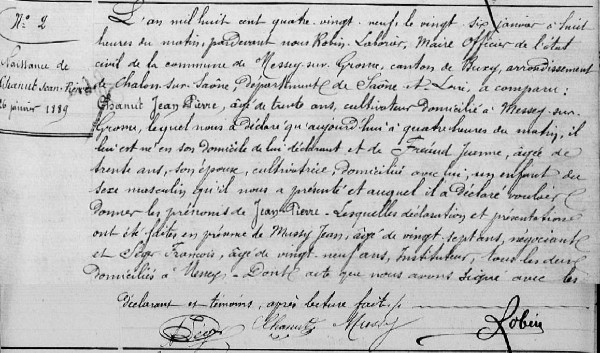 N° 2
Naissance de
Chanut Jean-Pierre
26 janvier 1889
L'an mil huit cent quatre-vingt-neuf, le vingt-six janvier à huit
heures du matin, pardevant nous Robin-Laborier, Maire Officier de l'état
civil de la commune de Messey-sur-Grosne, canton de Buxy, arrondissement
de Chalon-sur-Saône, Département de Saône et Loire, a comparu :
Chanut Jean Pierre, âgé de trente ans, cultivateur domicilié à Messey-sur-
Grosne, lequel nous a déclaré qu'aujourd'hui à quatre heures du matin, il
lui est né en son domicile de lui déclarant et de Jeanne, âgée de
trente ans, son épouse, cultivatrice, domiciliée avec lui, un enfant du
sexe masculin qu'il nous a présenté et auquel il a déclaré vouloir
donner les prénoms de Jean-Pierre. Lesquelles déclaration et présentation
ont été faites en présence de Mussy Jean, âgé de vingt-sept ans, négociant
et François, âgé de vingt-neuf ans, Instituteur, tous les deux
domiciliés à Messey. Dont acte que nous avons signé avec les
déclarant et témoins, après lecture fait.
Chanut Mussy Robin